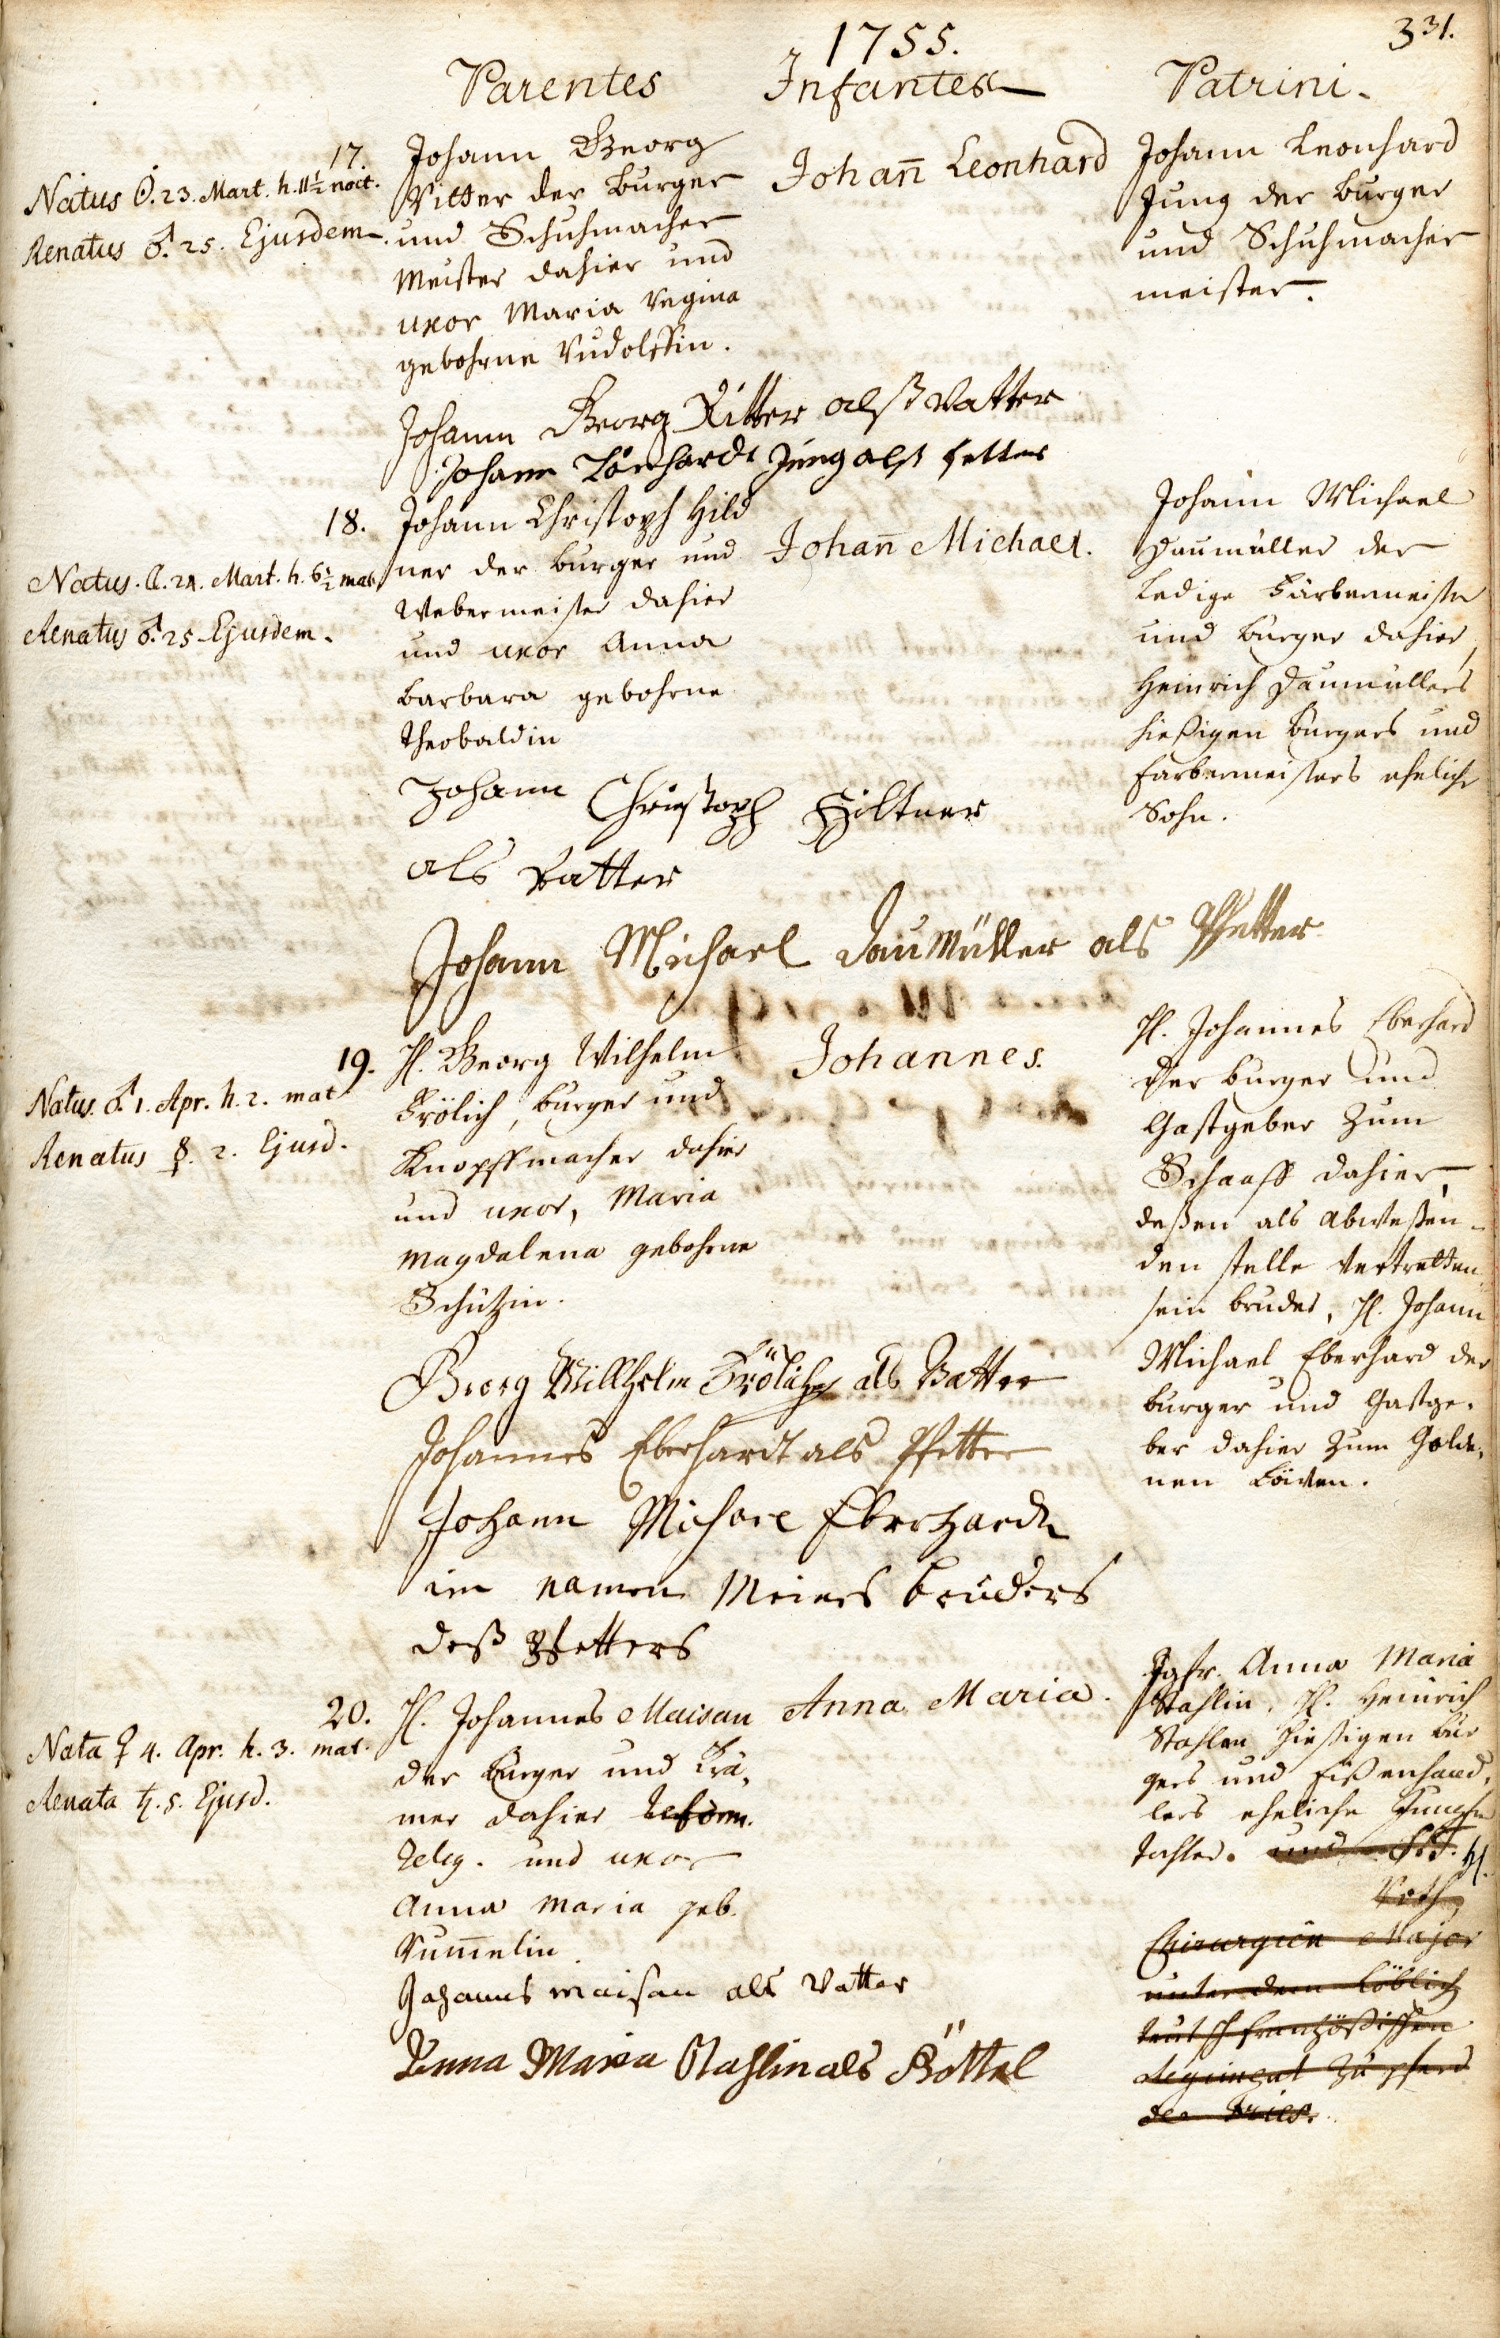 331.
1755.
Parentes Infantes Patrini.
17.
Natus ☉. 23. Mart. h. 11½ noct.
Renatus ♂. 25. Ejusdem.
Johann Georg
Ritter der Burger
und Schuhmacher
Meister dahier und
uxor Maria Regina
gebohrne Rudolffin.
Johann Leonhard
Johann Leonhard
Jung der Burger
und Schuhmacher
meister.
Johann Georg Ritter alß Vatter
Johann Lönhardt Jung alß fetter
18.
Natus. ☾. 24. Mart. h. 6½ mat.
Renatus ♂. 25 Ejusdem.
Johann Christoph Hild
ner der burger und
Webermeister dahier
und uxor Anna
Barbara gebohrne
Theobaldin
Johañ Michael.
Johann Michael
Daumüller der
Ledige Färbermeister
und Burger dahier,
Heinrich Daumüllers
hießigen Burgers und
Farbermeisters ehelicher
Sohn.
Johann Christoph Hiltner
als Vatter
Johann Michael Daumüller als Pfetter
19.
Natus. ♂. 1. Apr. h. 2. mat
Renatus ☿. 2. Ejusd.
H. Georg Wilhelm
Frölich, burger und
Knopffmacher dahier
und uxor, Maria
Magdalena gebohrne
Schützin.
Johannes.
H. Johannes Eberhard
der burger und
Gastgeber zum
Schaaff dahier,
deßen als abweßen-
den stelle vertretten
sein bruder, H. Johann
Michael Eberhard der
burger und Gastge-
ber dahier zum Golde-
nen Löwen.
Georg Willhelm Frölich als Vatter
Johannes Eberhardt als Pfetter
Johann Michael Eberhardt
im namen Meines bruders
deß Pfetters
20.
Nata ♀ 4. Apr. h. 3. mat.
Renata ♄. 5. Ejusd.
H. Johannes Maisan
der Burger und Krä-
mer dahier Reform.
Relig. und uxor
Anna Maria geb.
Rum̃elin
Anna Maria.
Jgfr. Anna Maria
Stahlin, H. Heinrich
Stahlen hießigen Bur
gers und Eißenhänd-
lers eheliche Jungfr
tochter. und H.
Roth,
Chirurgien Major
unter dem Löblich
teutsch französischen
Regiment zu pferd
de Fries.
Johannes Maisan als Vatter
Anna Maria Stahlin als Göttel